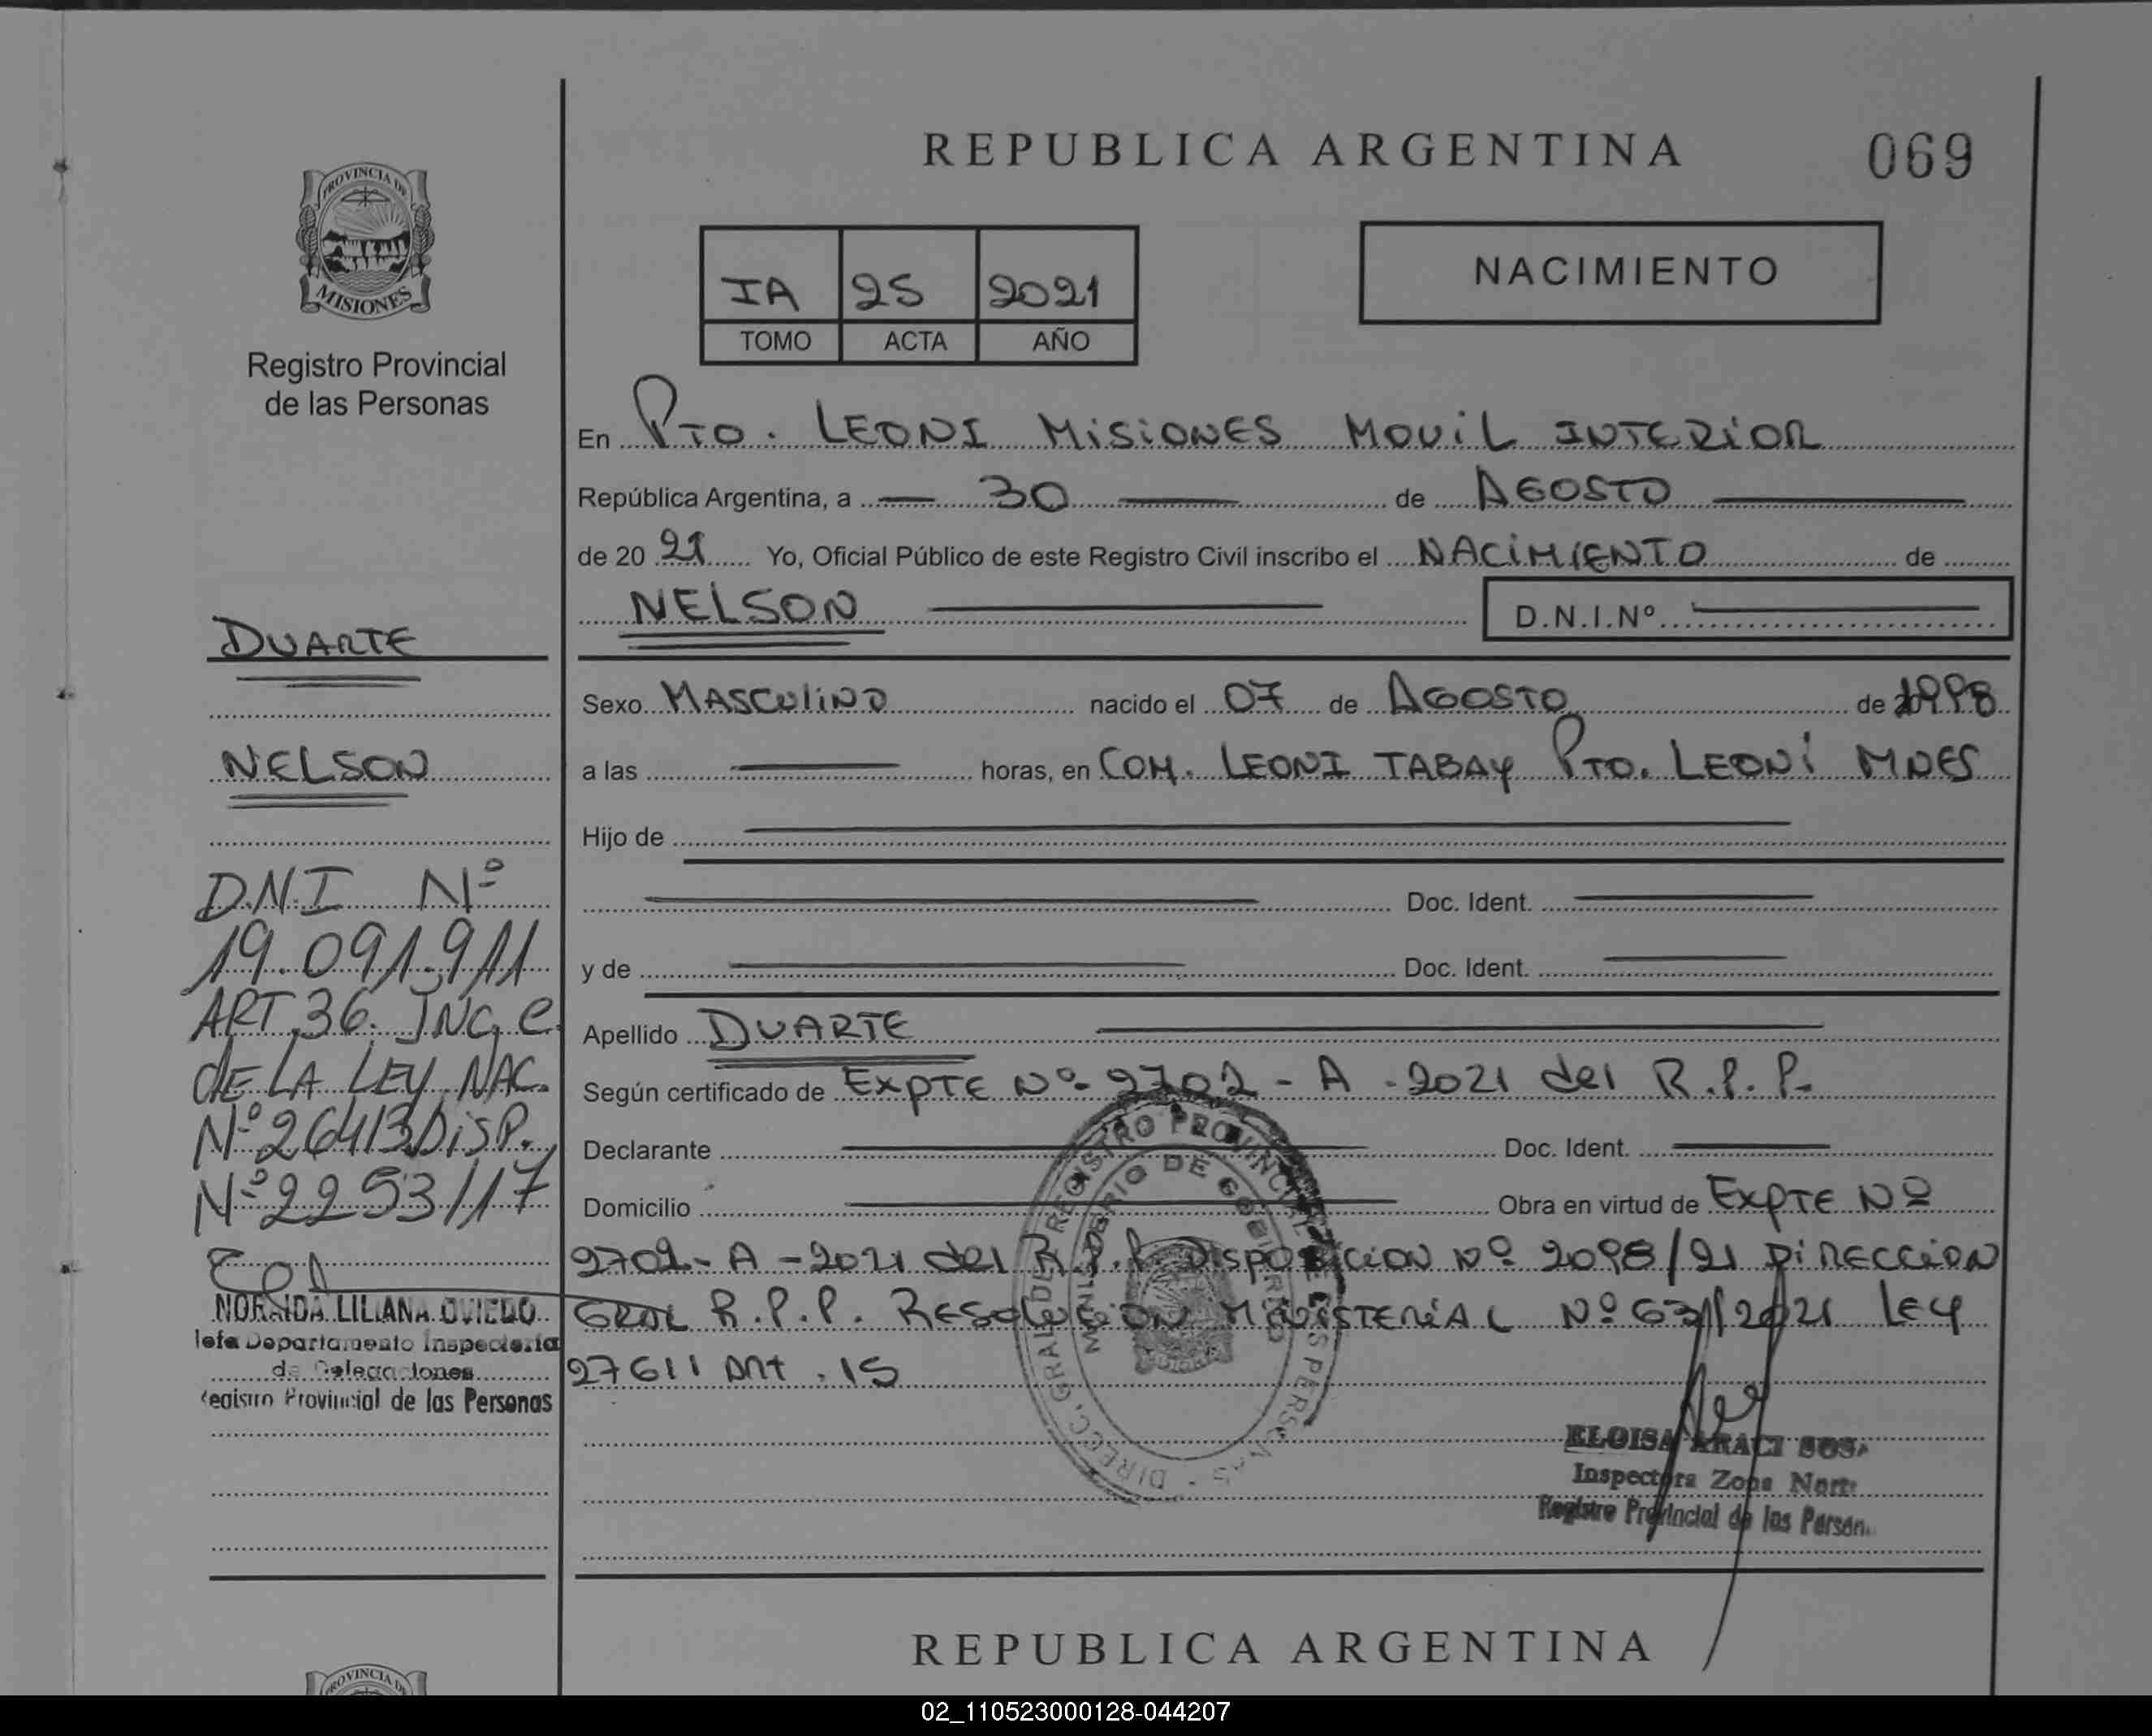 PROVINCIA DE
MISIONES
Registro Provincial
de las Personas
REPUBLICA ARGENTINA
069
IA 25 2021
TOMO ACTA AÑO
NACIMIENTO
En Pto. LEONI MISIONES MOVIL INTERIOR
República Argentina, a 30 de AGOSTO
de 20 21 Yo, Oficial Público de este Registro Civil inscribo el NACIMIENTO de
NELSON D.N.I.Nº
Sexo MASCULINO nacido el 07 de AGOSTO de 1998
a las horas, en COM. LEONI TABAY PTO. LEONI MNES
Hijo de
Doc. Ident.
y de Doc. Ident.
Apellido DUARTE
Según certificado de EXPTE Nº 2702 - A - 2021 del R.P.P.
Declarante Doc. Ident.
Domicilio Obra en virtud de EXPTE Nº
2702 - A - 2021 del R.P.P. DISPOSICION Nº 2098/21 DIRECCION
GRAL R.P.P. RESOLUCION MINISTERIAL Nº 2021 LEY
27611 ART. 15
DUARTE
NELSON
D.N.I Nº
19.091.911
ART.36. INC, e
dE LA LEY NAC.
Nº 26413 DISP.
Nº 2253/17
LILIANA OVIEDO
Jefe Departamento Inspectoria
de Delegaciones
Registro Provincial de las Personas
DIRECC. GRAL DEL REGISTRO PROVINCIAL DE LAS PERSONAS
MINISTERIO DE GOBIERNO
ELOISA ARACI SOSA
Inspectora Zona Norte
Registro Provincial de las Person.
REPUBLICA ARGENTINA
PROVINCIA DE
02_110523000128-044207